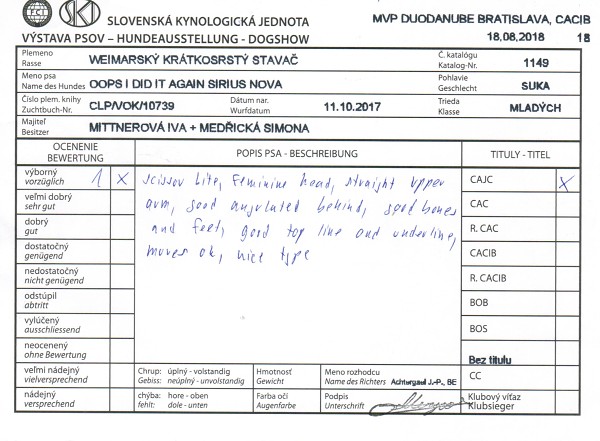 FCI
SKJ
SLOVENSKÁ KYNOLOGICKÁ JEDNOTA
MVP DUODANUBE BRATISLAVA, CACIB
VÝSTAVA PSOV – HUNDEAUSSTELLUNG - DOGSHOW
18.08.2018 18
Plemeno
Rasse
WEIMARSKÝ KRÁTKOSRSTÝ STAVAČ
Č. katalógu
Katalog-Nr.
1149
Meno psa
Name des Hundes
OOPS I DID IT AGAIN SIRIUS NOVA
Pohlavie
Geschlecht
SUKA
Číslo plem. knihy
Zuchtbuch-Nr.
CLP/VOK/10739
Dátum nar.
Wurfdatum
11.10.2017
Trieda
Klasse
MLADÝCH
Majiteľ
Besitzer
MITTNEROVÁ IVA + MEDŘICKÁ SIMONA
OCENENIE
BEWERTUNG
POPIS PSA - BESCHREIBUNG
TITULY - TITEL
výborný
vorzüglich
1 x
scissor bite, Feminine head, straight upper
arm, good angulated behind, good bones
and feet, good top line and underline,
moves ok, nice type
CAJC x
veľmi dobrý
sehr gut
CAC
dobrý
gut
R. CAC
dostatočný
genügend
CACIB
nedostatočný
nicht genügend
R. CACIB
odstúpil
abtritt
BOB
vylúčený
ausschliessend
BOS
neocenený
ohne Bewertung
Bez titulu
veľmi nádejný
vielversprechend
Chrup: úplný - volstandig
Gebiss: neúplný - unvolstandig
Hmotnosť
Gewicht
Meno rozhodcu
Name des Richters Achtergael J.-P., BE
CC
nádejný
versprechend
chýba: hore - oben
fehlt: dole - unten
Farba očí
Augenfarbe
Podpis
Unterschrift
Klubový víťaz
Klubsieger